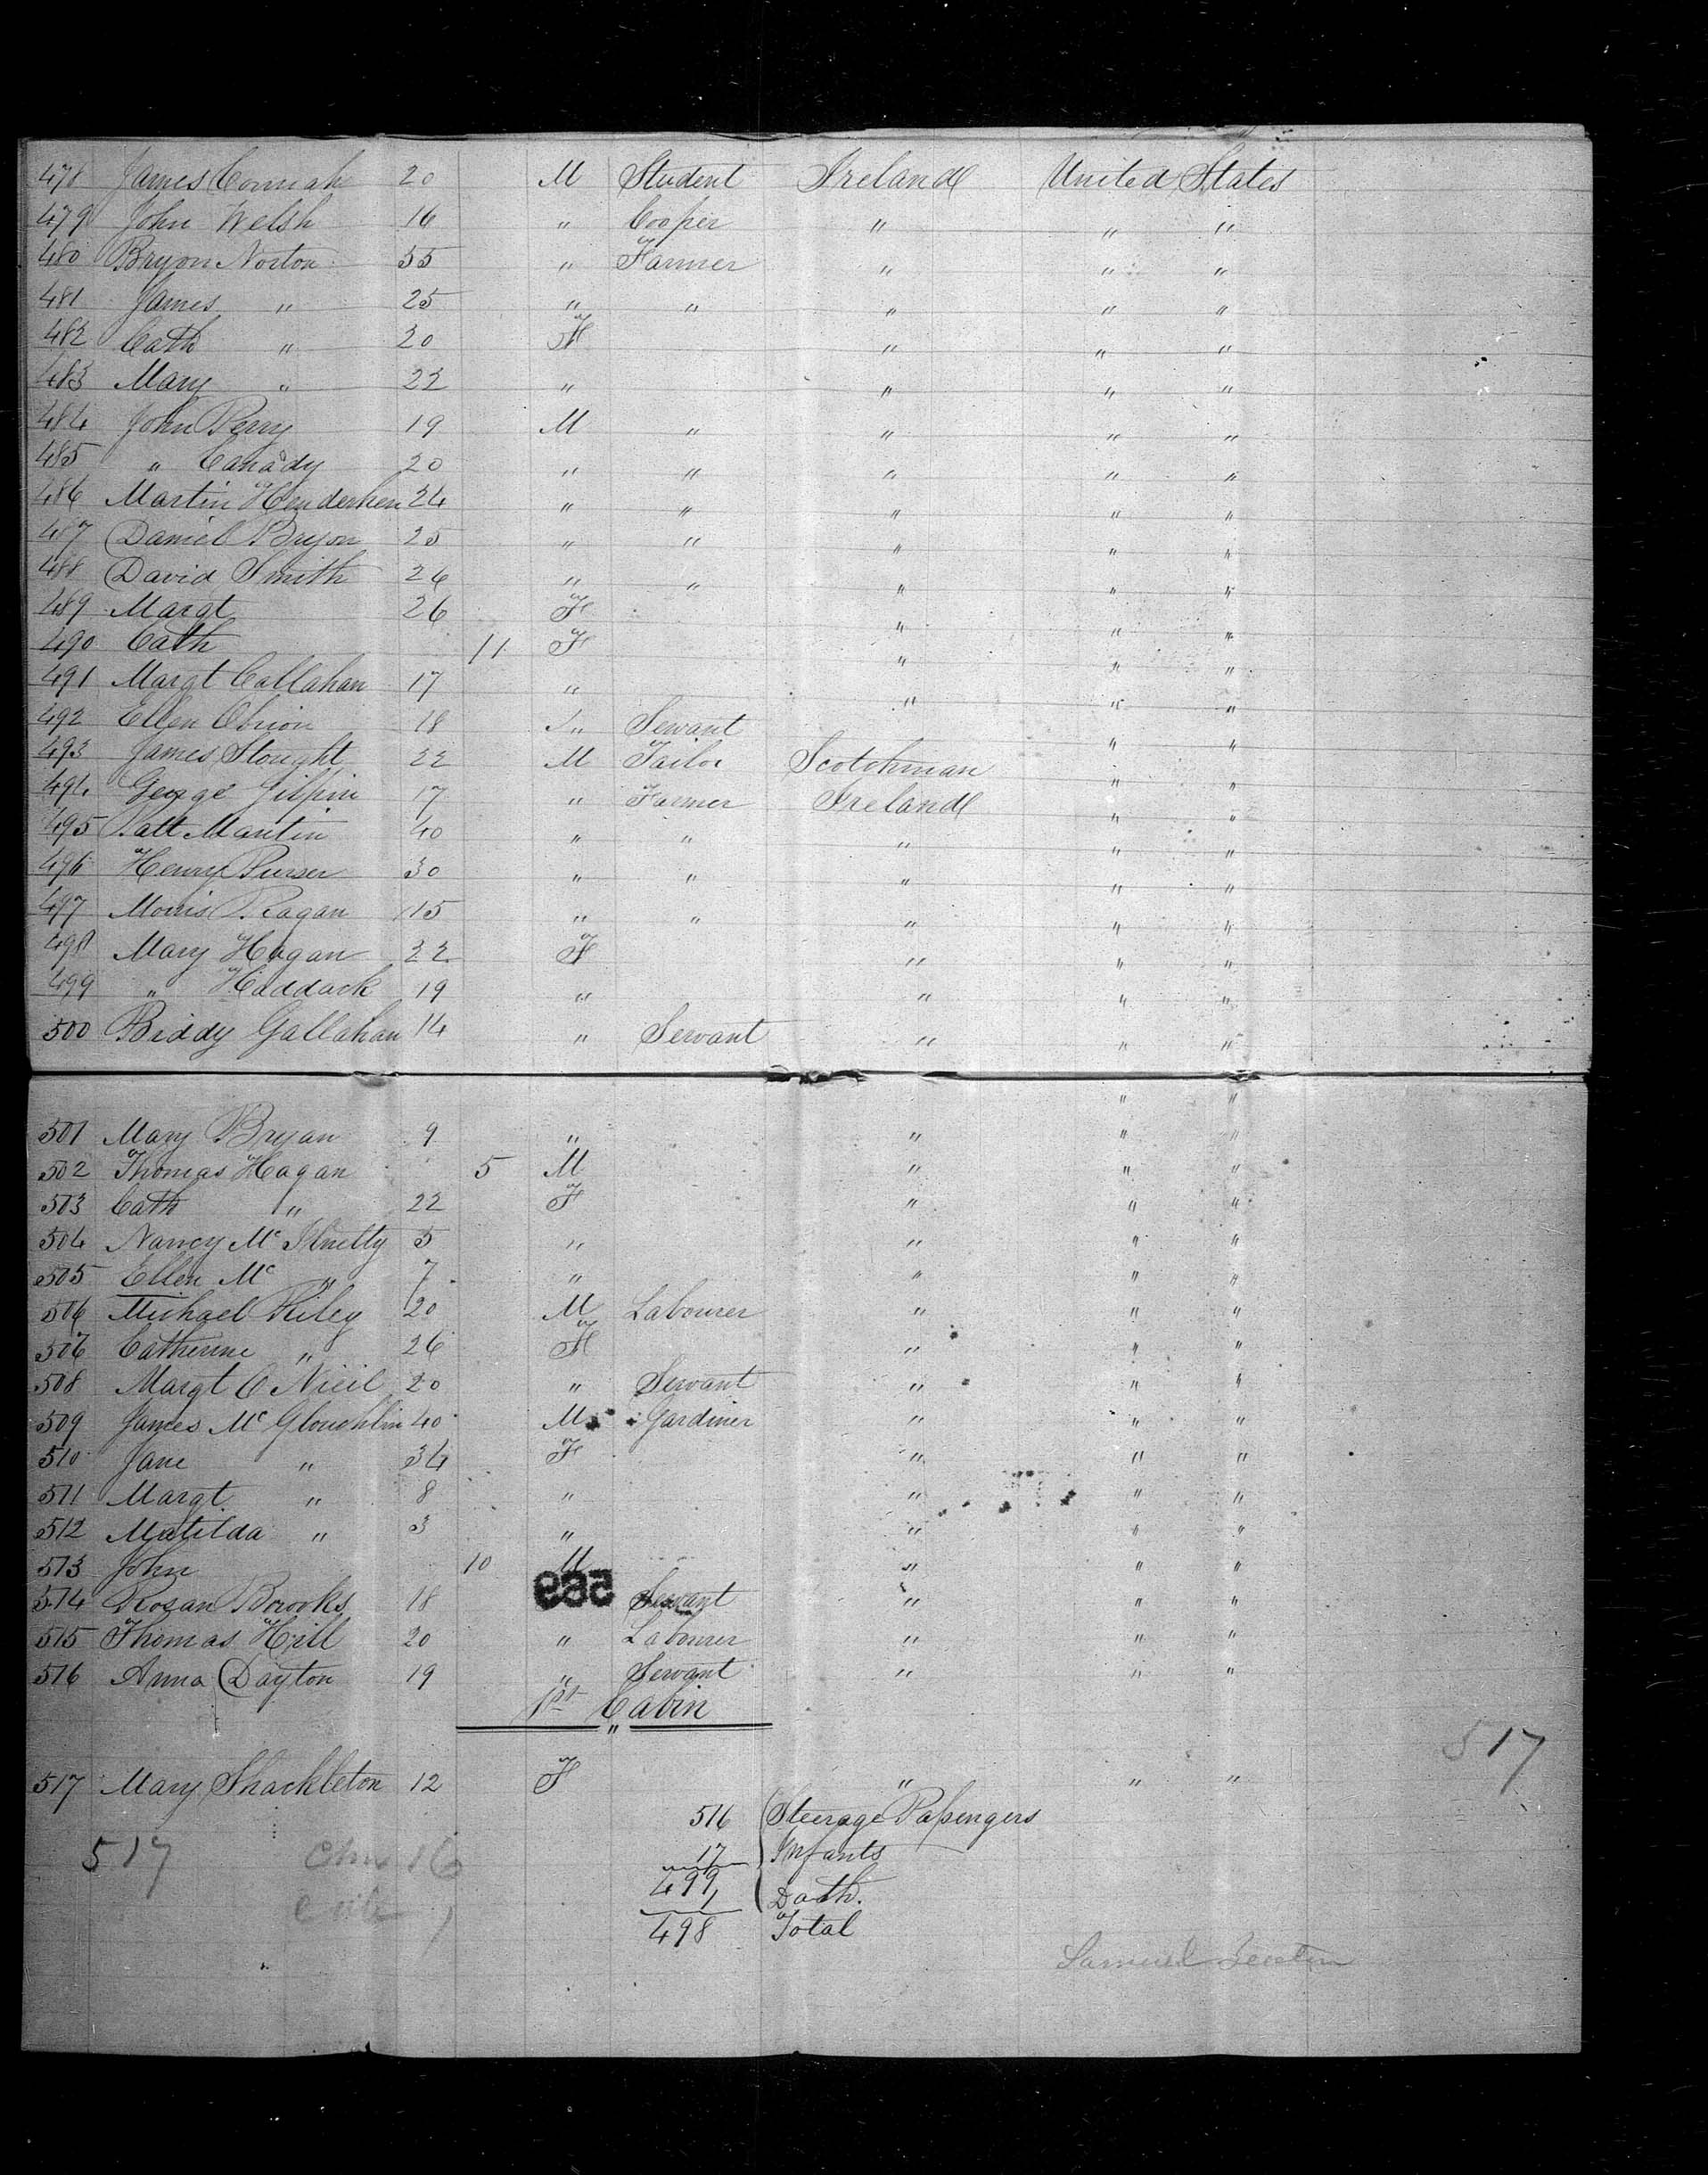 478 James Cormick 20 M Student Ireland United States
479 John Welsh 16 " Cooper " " "
480 Bryon Norton 55 " Farmer " " "
481 James " 25 " " " " "
482 Cath " 20 F " " "
483 Mary " 22 " " " "
484 John Perry 19 M " " " "
485 " Canady 20 " " " " "
486 Martin Henderken 24 " " " " "
487 Daniel Bryon 25 " " " " "
488 David Smith 26 " " " " "
489 Margt 26 F " " "
490 Cath 11 F " " "
491 Margt Callahan 17 " " " "
492 Ellen Obrion 18 " Servant " "
493 James Stought 22 M Tailor Scotchman " "
494 George Gilpin 17 " Farmer Ireland " "
495 Patt Martin 40 " " " " "
496 Henry Purser 30 " " " " "
497 Morris Ragan 15 " " " " "
498 Mary Hagan 22 F " " "
499 " Haddack 19 " " " "
500 Biddy Gallahan 14 " Servant " " "
" "
501 Mary Bryan 9 " " " "
502 Thomas Hagan 5 M " " "
503 Cath " 22 F " " "
504 Nancy Mc 5 " " " "
505 Ellen Mc " 7 " " " "
506 Michael Riley 20 M Labourer " " "
506 Catherine " 26 F " " "
508 Margt O Nieil 20 " Servant " " "
509 James Mc Gloughlin 40 M Gardiner " " "
510 Jane " 34 F " " "
511 Margt " 8 " " " "
512 Matilda " 3 " " " "
513 John 10 M " " "
514 Rosan Brooks 18 589 Servant " " "
515 Thomas Hill 20 " Labourer " " "
516 Anna Dayton 19 " Servant " " "
1st Cabin
"
517
517 Mary Shackleton 12 F " " "
516 Steerage Passengers
517 17 Infants
499
1 Dath.
498 Total
Samuel